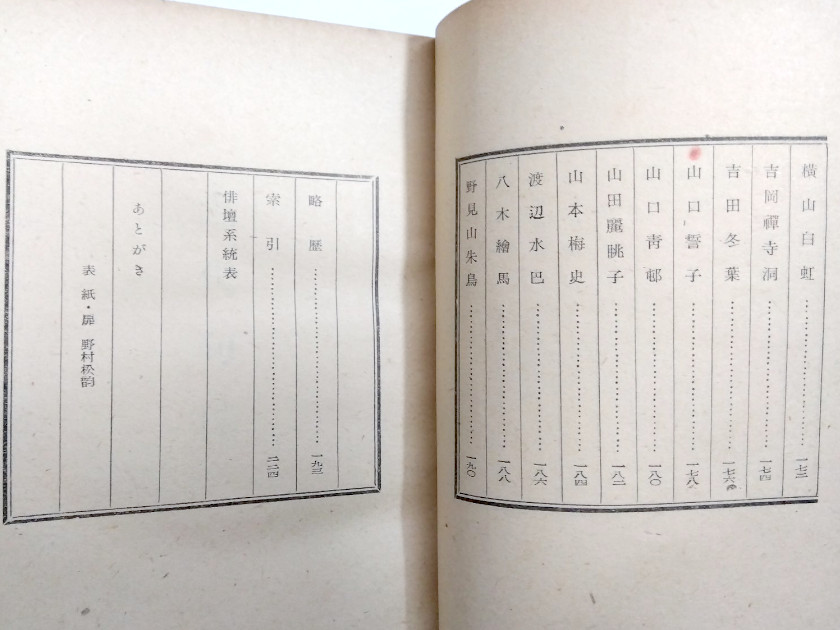 横山白虹……………………一七二
吉岡禪寺洞……………………一七四
吉田冬葉……………………一七六
山口誓子……………………一七八
山口青邨……………………一八〇
山田麗眺子……………………一八二
山本梅史……………………一八四
渡辺水巴……………………一八六
八木繪馬……………………一八八
野見山朱鳥……………………一九〇
略歴……………………一九三
索引……………………二二四
俳壇系統表
あとがき
表紙・扉 野村松韵